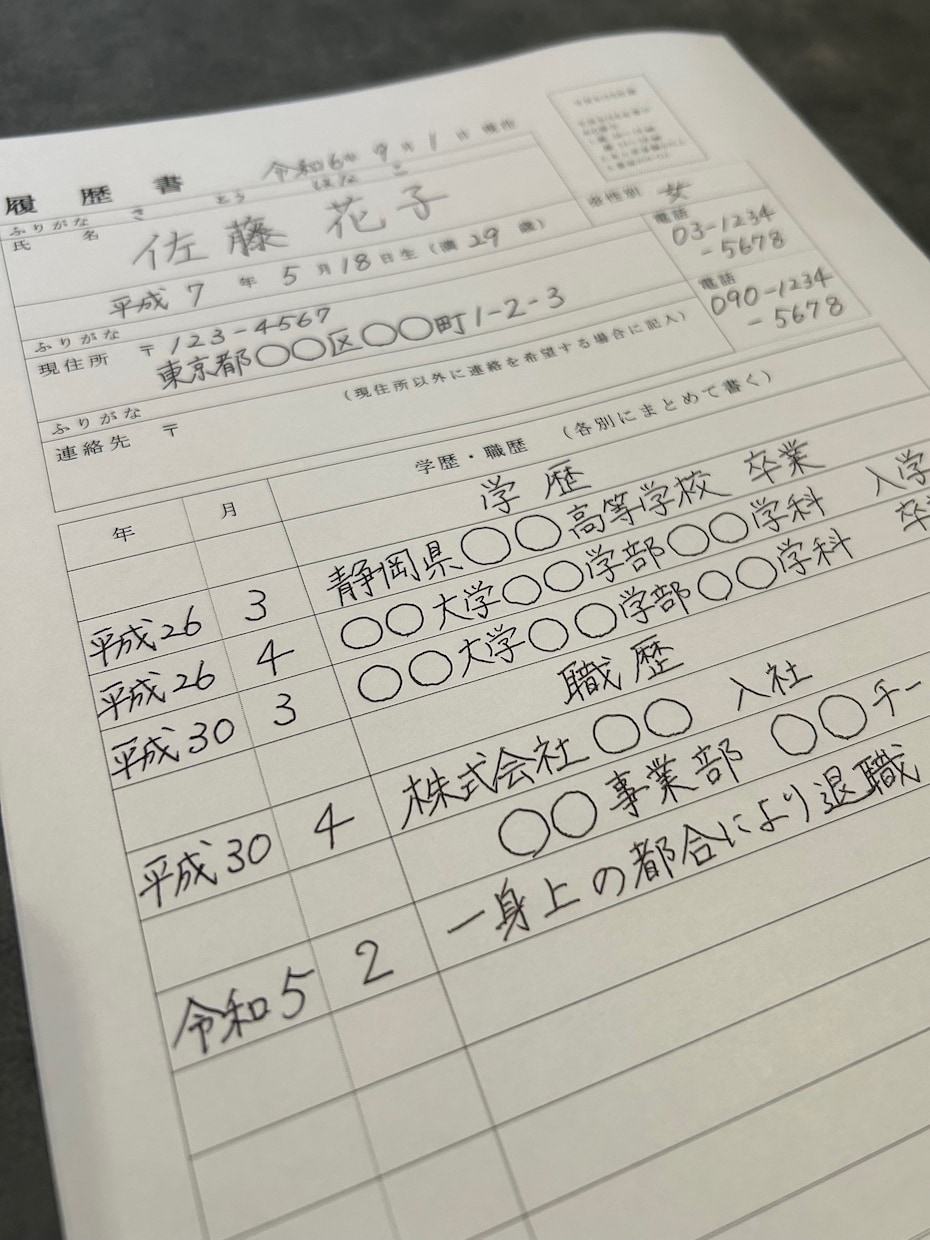 履歴書 令和6年 9月 1日 現在
ふりがな さとう はなこ
氏名 佐藤 花子
※性別 女
平成 7 年 5 月 18 日生 (満 29 歳)
電話
03-1234
-5678
ふりがな
現住所 〒 123-4567
東京都〇〇区〇〇町1-2-3
電話
090-1234
-5678
ふりがな
連絡先 〒 (現住所以外に連絡を希望する場合に記入)
年 月 学歴・職歴 (各別にまとめて書く)
学歴
平成26 3 静岡県〇〇高等学校 卒業
平成26 4 〇〇大学〇〇学部〇〇学科 入学
平成30 3 〇〇大学〇〇学部〇〇学科 卒
職歴
平成30 4 株式会社〇〇 入社
〇〇事業部 〇〇チー
令和5 2 一身上の都合により退職